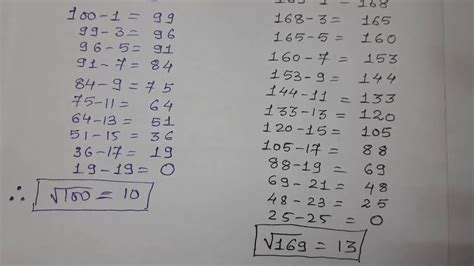 100-1 = 99
99-3 = 96
96-5 = 91
91-7 = 84
84-9 = 75
75-11 = 64
64-13 = 51
51-15 = 36
36-17 = 19
19-19 = 0
∴ √100 = 10
169-1 = 168
168-3 = 165
165-5 = 160
160-7 = 153
153-9 = 144
144-11 = 133
133-13 = 120
120-15 = 105
105-17 = 88
88-19 = 69
69-21 = 48
48-23 = 25
25-25 = 0
√169 = 13